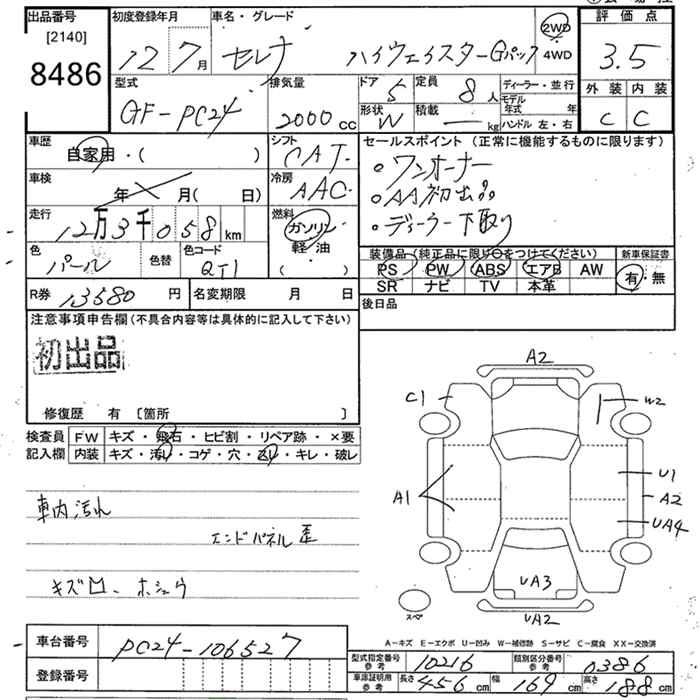 出品番号
[2140]
8486
初度登録年月 車名・グレード
12 7月 セレナ ハイウェイスターGパック
2WD
4WD
評価点
3.5
外装 内装
C C
型式 排気量 ドア 定員 ディーラー・並行
GF-PC24 2000cc 5 8人
モデル年式 年
形状 積載 ハンドル 左・右
W ー kg
車歴 シフト
自家用・( ) CAT
車検 冷房
年 月(日) AAC
走行 燃料
12万3千058km ガソリン
軽・油
( )
色 色替 色コード
パール QT1
セールスポイント(正常に機能するものに限ります)
・ワンオーナー
・AA初出品
・ディーラー下取り
装備品(純正品に限り○をつけてください) 新車保証書
PS PW ABS エアB AW 有・無
SR ナビ TV 本革
R券 13580円 名変期限 月 日
後日品
注意事項申告欄(不具合内容等は具体的に記入して下さい)
初出品
修復歴 有 〔箇所 〕
検査員 FW キズ・飛石・ヒビ割・リペア跡・×要
記入欄 内装 キズ・汚レ・コゲ・穴・スレ・キレ・破レ
車内汚れ
エンドパネル歪
キズ凹 ホシュウ
A2
C1
W2
A1
U1
A2
UA4
UA3
スペア
UA2
A-キズ E-エクボ U-凹み W-補修跡 S-サビ C-腐食 XX-交換済
車台番号 PC24-106527
登録番号
型式指定番号参考 10216 類別区分番号参考 0386
車庫証明用参考 長さ 456cm 幅 169cm 高さ 188cm